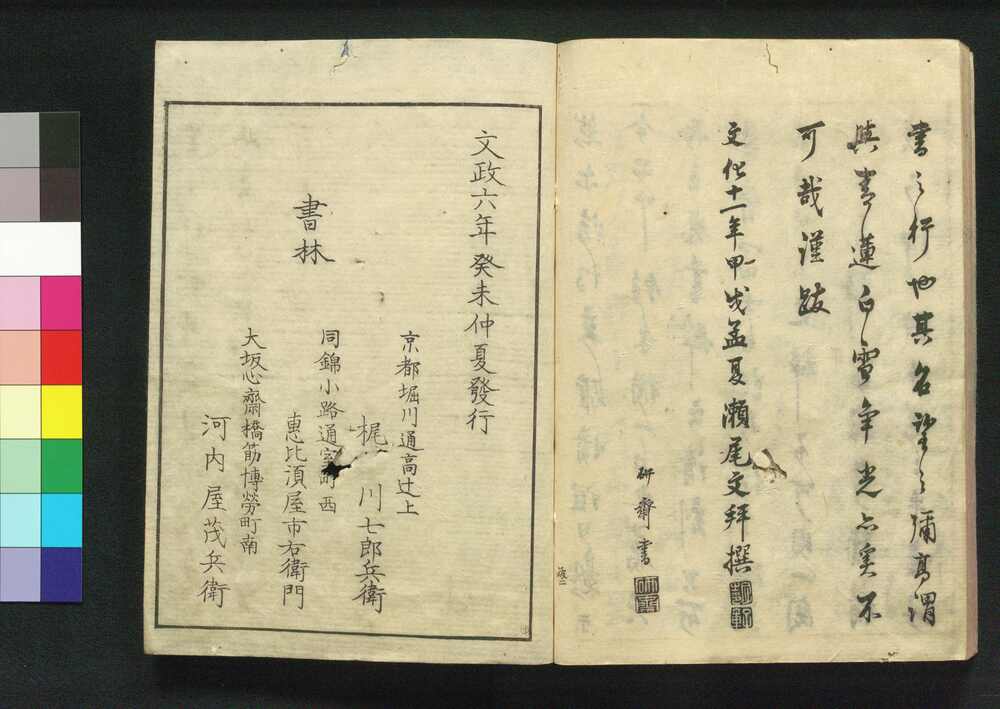 書之行也其名望之彌高謂
與青蓮白雪争光亦奚不
可哉謹跋
文化十一年甲戌孟夏瀬尾文拜撰
研齋書
跋二
文政六年癸未仲夏發行
書林
京都堀川通高辻上
梶川七郎兵衛
同錦小路通室町西
恵比須屋市右衛門
大坂心齋橋筋博勞町南
河内屋茂兵衛